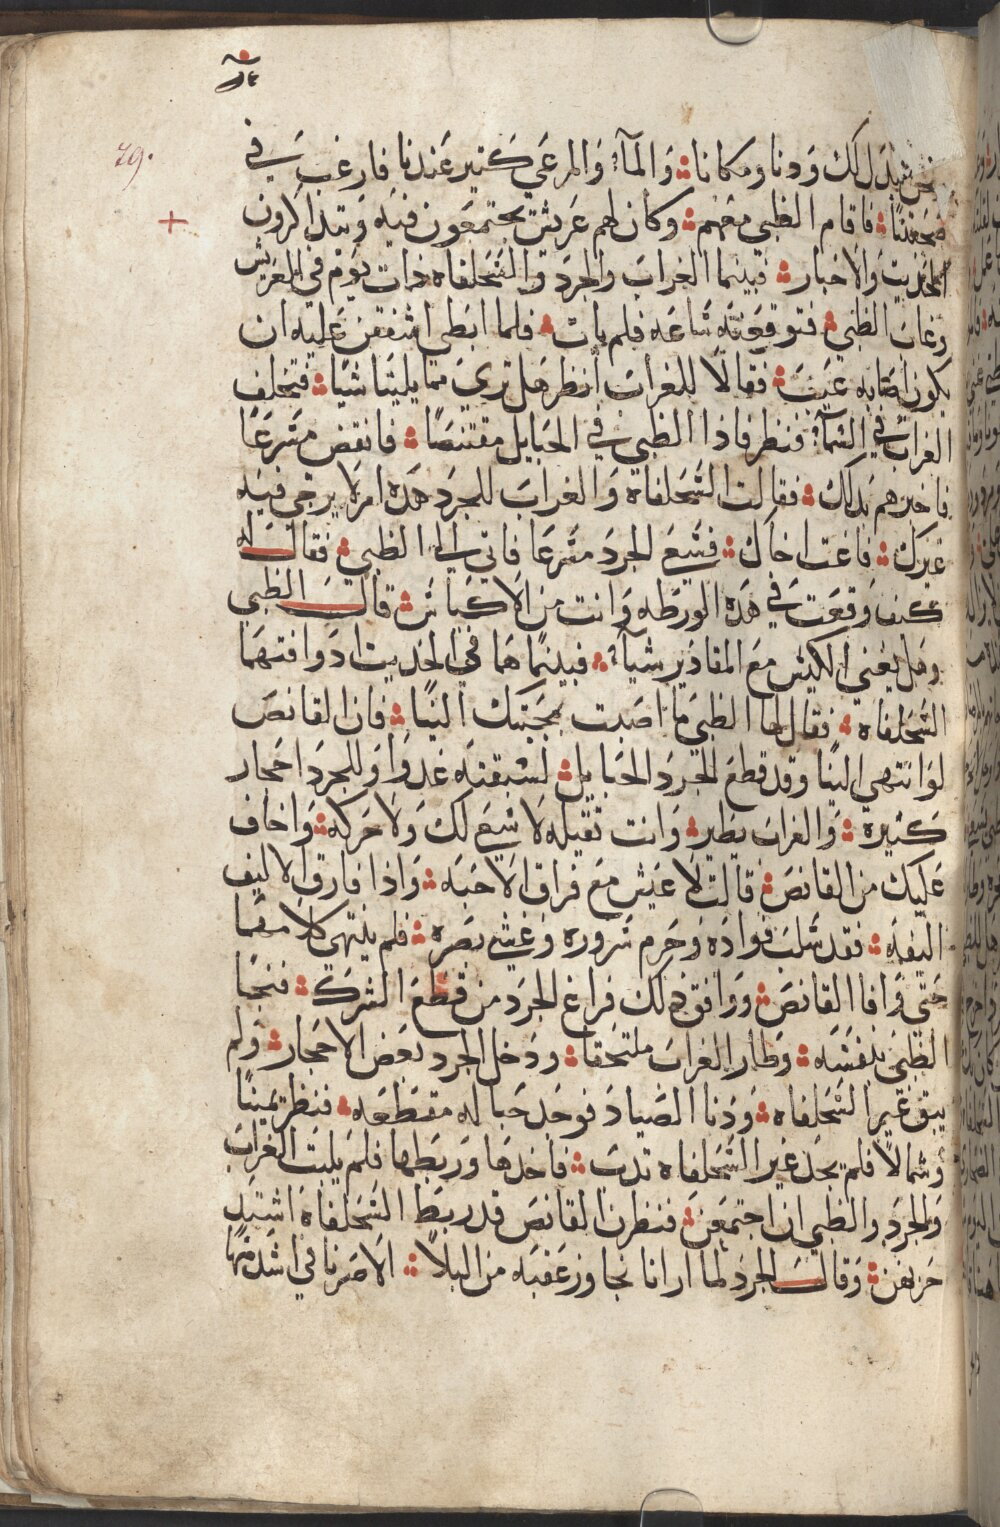 79.
نحن نبدل لك ودنا ومكاننا والمآء والمرعي كثير عندنا فارغب في
صحبتنا فاقام الظبي معهم وكان لهم عريش يجتمعون فيه ويتذاكرون
الحديث والاخبار فبينما الغراب والجرد والسحلفاه ذات يوم في العريش
وغاب الظبي فتوقعنه ساعه فلم يات فلما ابطى اشفقن عليه ان
يكون اصابه عيب فقالا للغراب انظر هل تري مما يلينا شيا فتحلف
الغراب في السمآء فنظر فاذا الظبي في الحبايل مقتنصا فانقض مسرعا
فاخبرهم بدلك فقالت السحلفاه والغراب للجرد هده امر لا يرجي فيه
غيرك فاغت اخاك فسع الجرد مسرعا فاتي الي الظبي فقال له
كيف وقعت في هده الورطه وانت من الاكياس قال الظبي
وهل يغني الكيس مع المقادير شيآ فبينما هما في الحديث اد وافتهما
السحلفاه فقال لها الظبي ما اصبت بمجيتك الينا فان القانص
لو انتهي الينا وقد قطع الجرد الحبايل لسبقته عدوا وللجرد احجار
كثيره والغراب يطير وانت تقيله لا سع لك ولا حركه واخاف
عليك من القانص قالت لا عيش مع فراق الاحبه واذا فارق الاليف
اليفه فقد سلب فواده وحرم سروره وغشي بصره فلم ينتهي كلامهما
حتي وافا القانص ووافق دلك فراغ الجرد من قطع الشرك فنجا
الظبي بنفسه وطار الغراب ملتحقا ودخل الجرد بعض الاحجار ولم
يبق غير السحلفاه ودنا الصياد فوجد حباله مقطعه فنظر يمينا
وشمالا فلم يجد غير السحلفاه تدب فاخدها وربطها فلم يلبت الغراب
والجرد والظبي ان اجتمعن فنظرن القانص قد ربط السحلفاه اشتد
حزنهن وقال الجرد لما ارانا نجاوز عقبه من البلا الا صرنا في اشد منها